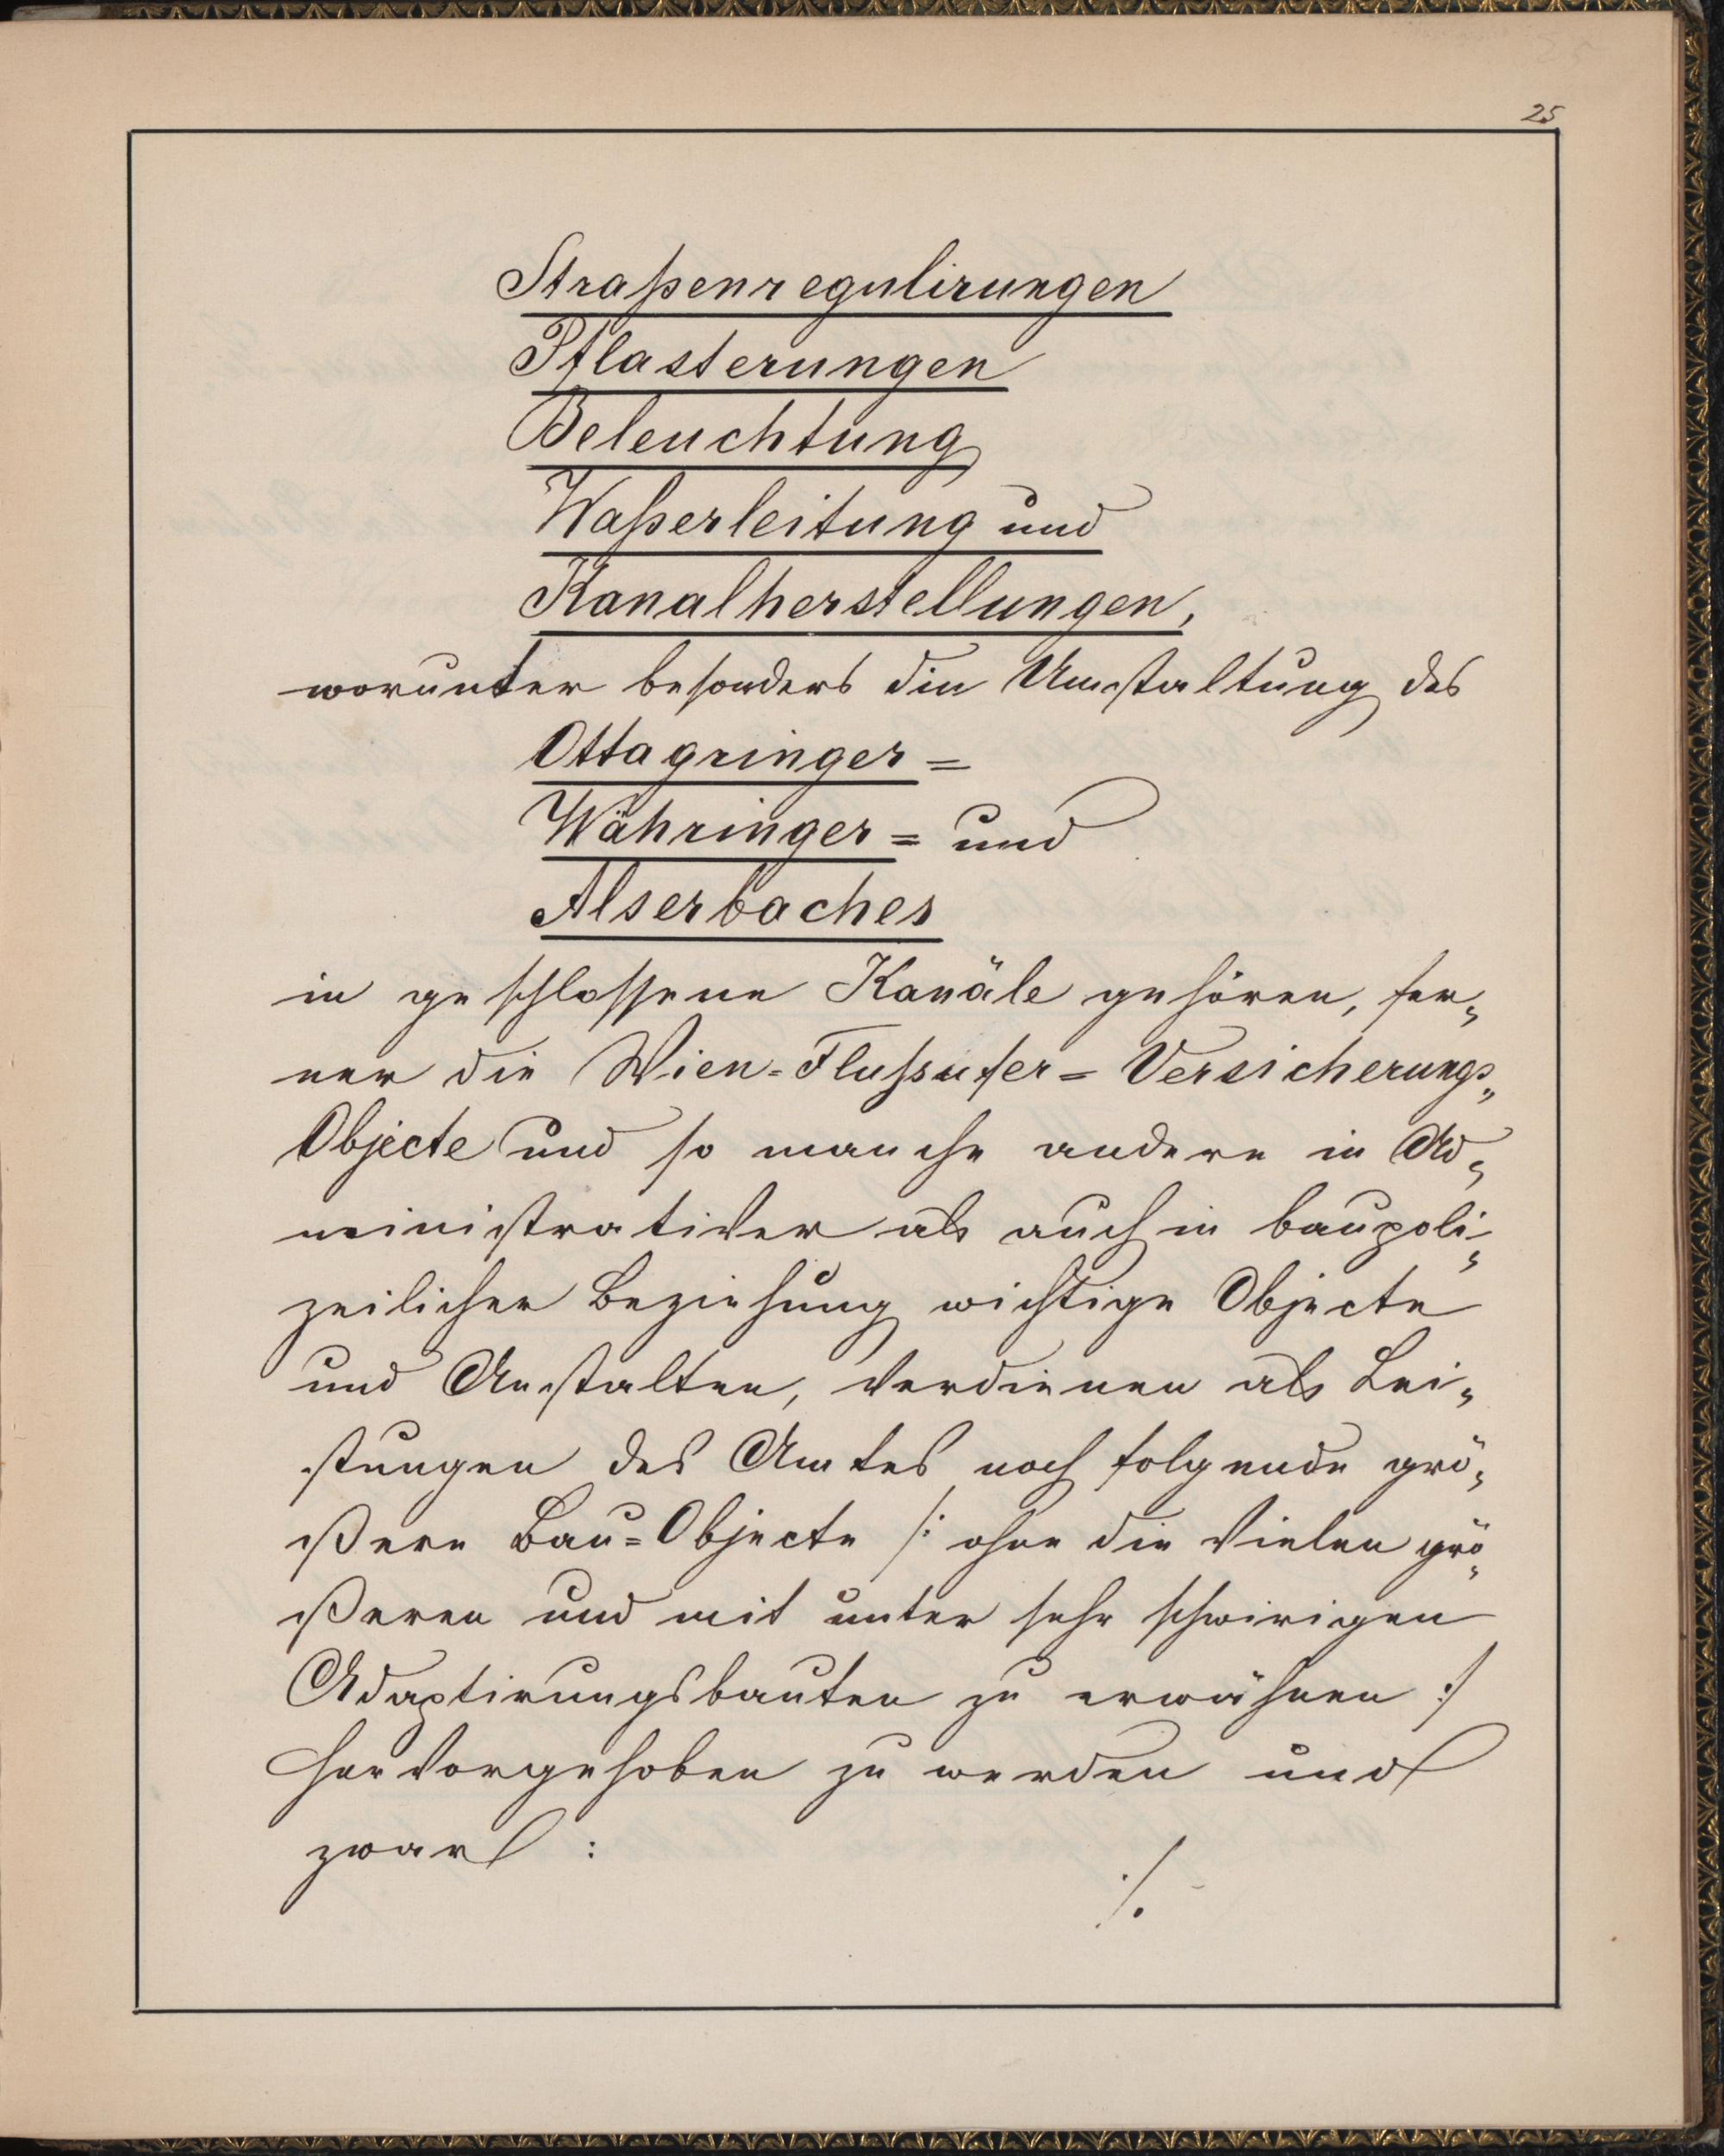 25
Straßenregulirungen
Pflasterungen
Beleuchtung
Waßerleitung und
Kanalherstellungen,
worunter besonders die Umstaltung des
Ottagringer=
Währinger= und
Alserbaches
in geschlossene Kanäle gehören, fer„
ner die Wien=Flußufer=Versicherungs„
Objecte und so manche andere in Ad„
ministrativer als auch in baupoli„
zeilicher Beziehung wichtige Objecte
und Anstalten, verdienen als Lei„
stungen des Amtes noch folgende grö„
ßere Bau=Objecte /: ohne die vielen grö„
ßeren und mit unter sehr schwirigen
Adaptirungsbauten zu erwähnen :/
hervorgehoben zu werden und
zwar :
./.